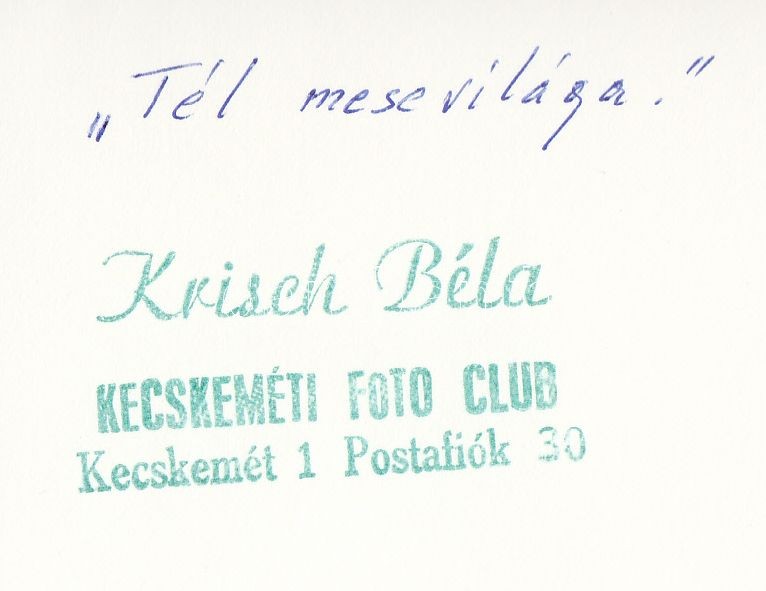 „Tél mesevilága.”
Krisch Béla
KECSKEMÉTI FOTO CLUB
Kecskemét 1 Postafiók 30